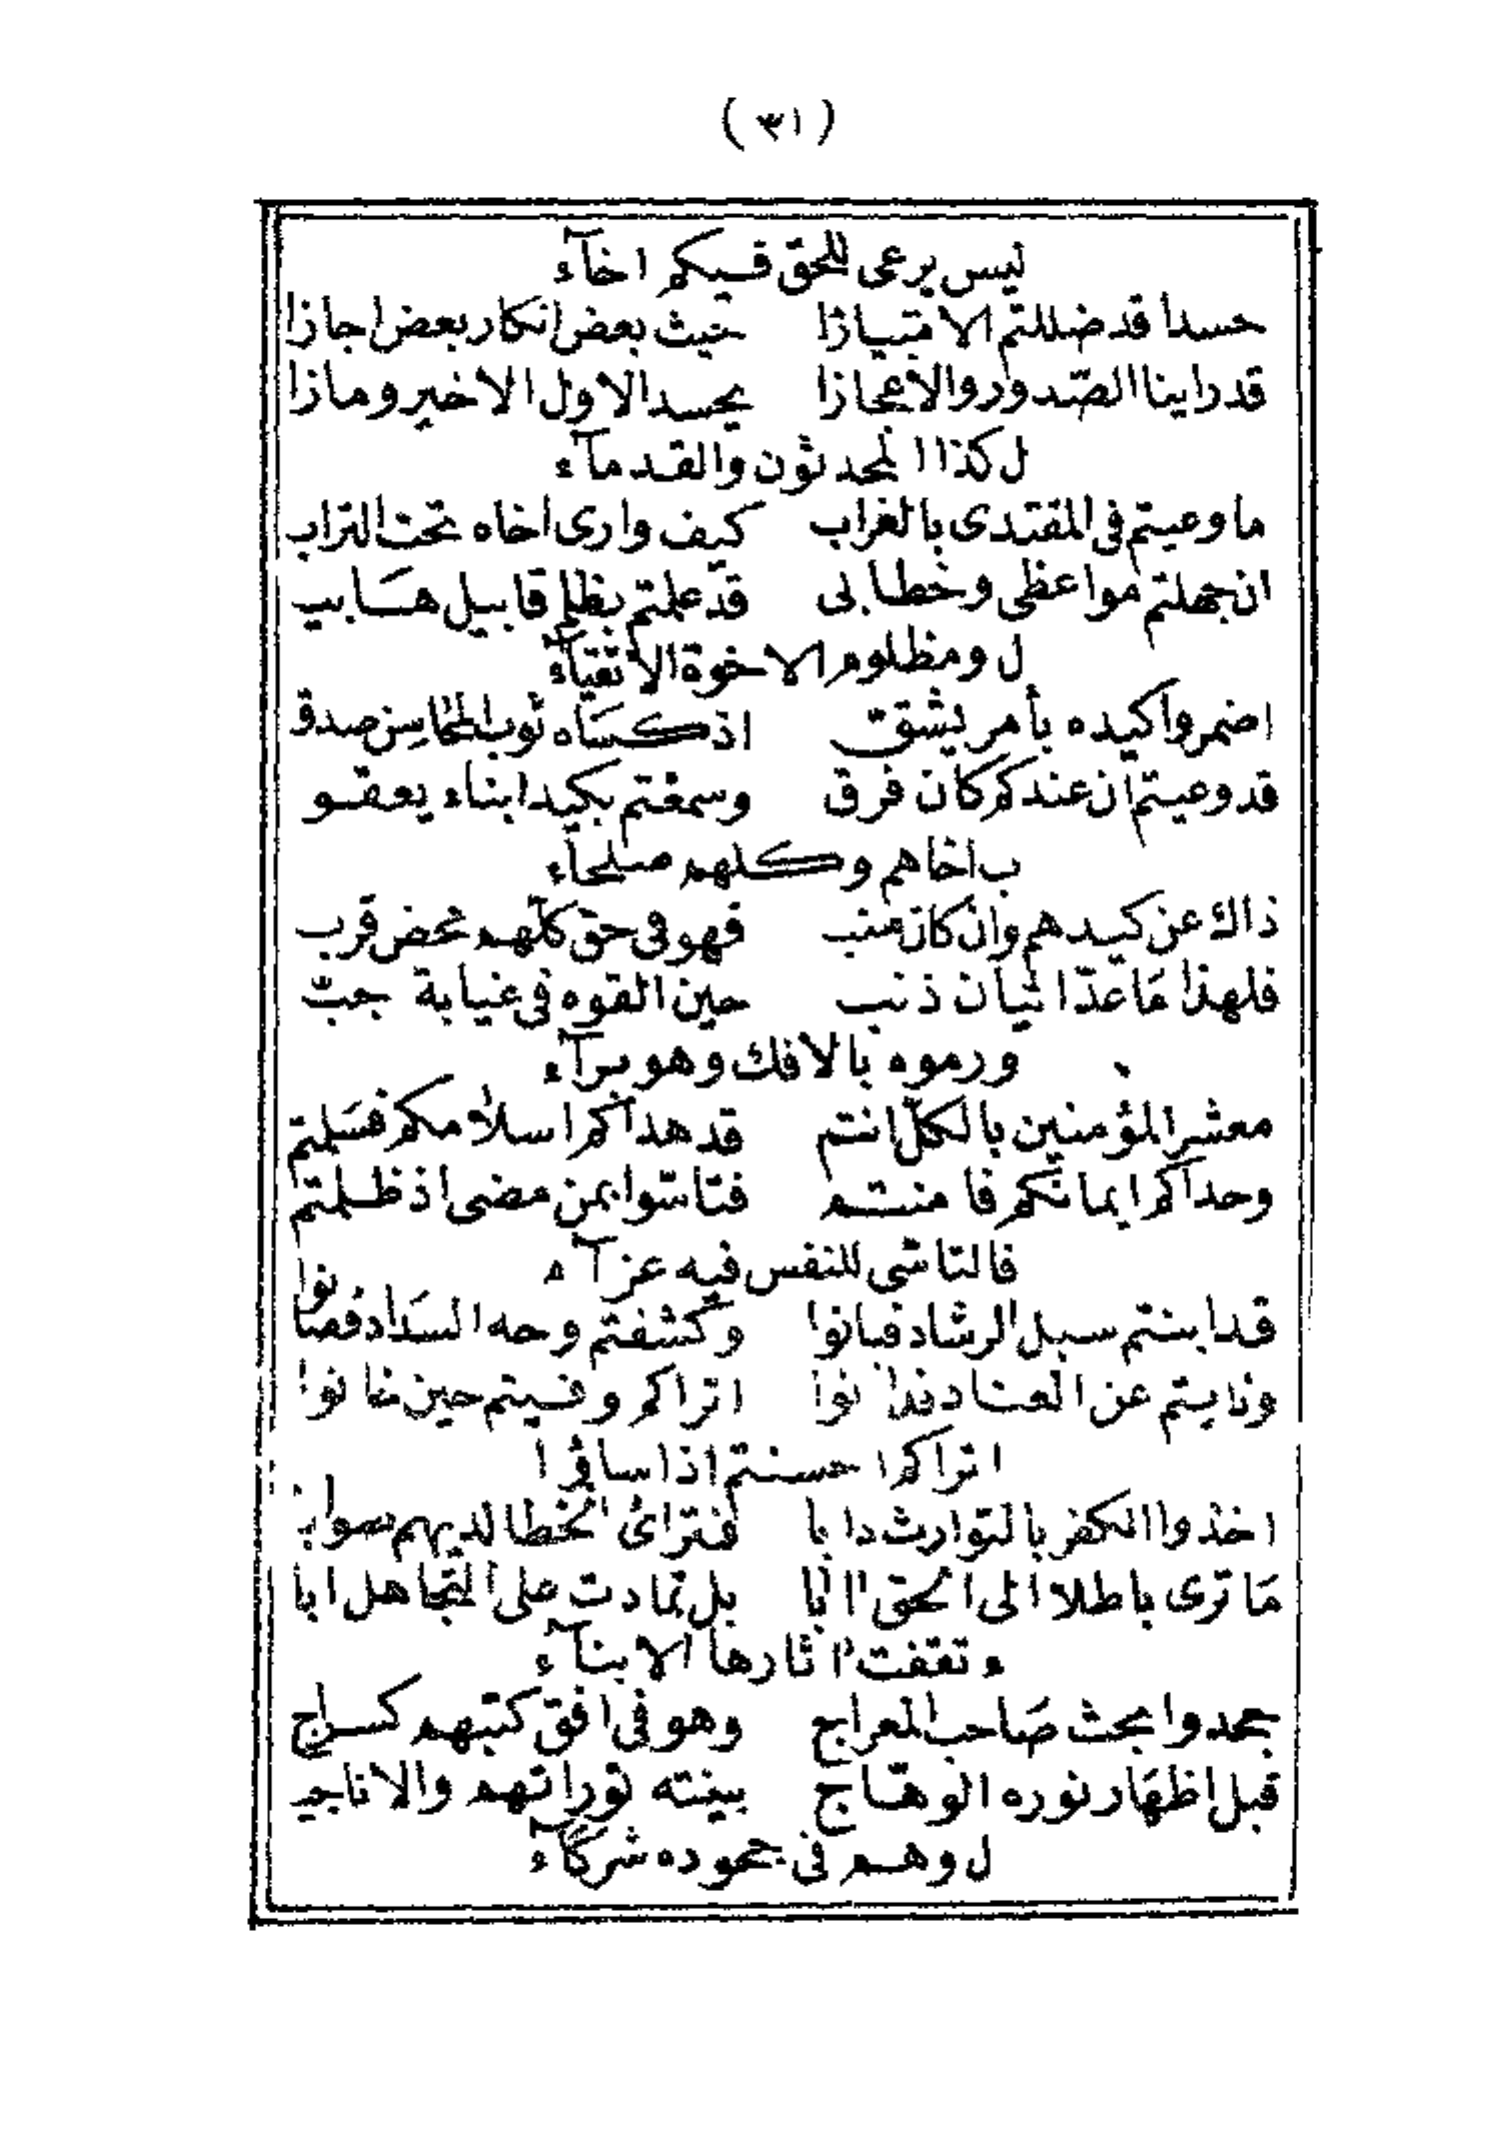 (٣١)
ليس يرعى للحق فيكم اخآء
حسدا قد ضللتم الامتيازا حيث بعض انكار بعض اجازا
قد راينا الصّدور والاعجازا يحسد الاول الاخير ومازا
ل كذا المحدثون والقدمآء
ما وعيتم في المقتدى بالغراب كيف وارى اخاه تحت التراب
ان جهلتم مواعظى وخطابى قد علمتم بظلم قابيل هابيـ
ل ومظلوم الاخوة الاتقيآء
اضمروا كيده بأمر يشقّ اذ كساه ثوب المحاسن صدق
قد وعيتم ان عندكم كان فرق وسمعتم بكيد ابناء يعقو
ب اخاهم وكلهم صلحآء
ذاك عن كيدهم وان كان منب فهو في حق كلّهم محض قرب
فلهذا ما عدّ اتيان ذنب حين القوه في غيابة جبّ
ورموه بالافك وهو برآء
معشر المؤمنين بالكلّ انتم قد هداكم اسلامكم فسلمتم
وحداكم ايمانكم فامنتم فتاسّوا بمن مضى اذ ظلمتم
فالتاسّى للنفس فيه عزآء
قد ابنتم سبل الرشاد فبانوا وكشفتم وجه السداد فصانوا
ونايتم عن العناد فدانوا اتراكم وفيتم حين خانوا
ام تراكم احسنتم اذا ساؤا
اخذوا الكفر بالتوارث دابا فترائى الخطا لديهم صوابا
ما ترى باطلا الى الحق آبا بل تمادت على التجاهل ابا
ء تقفت آثارها الابنآء
جحدوا بحث صاحب المعراج وهو في افق كتبهم كسراج
قبل اظهار نوره الوهّاج بينته توراتهم والاناجيـ
ل وهم في جحوده شركآء